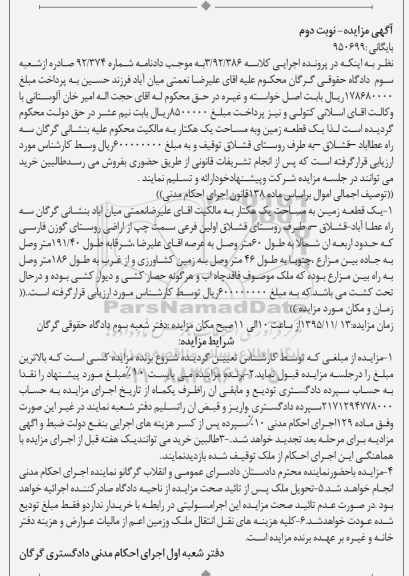 آگهی مزایده- نوبت دوم
بایگانی: ۹۵۰۶۹۹
نظر به اینکه در پرونده اجرایی کلاسه ۳/۹۲/۳۸۶به موجب دادنامه شماره ۹۲/۳۷۴ صادره ازشعبه
سوم دادگاه حقوقی گرگان محکوم علیه اقای علیرضا نعمتی میان آباد فرزند حسین به پرداخت مبلغ
۱۷۸۶۸۰۰۰۰ریال بابت اصل خواسته و غیره در حق محکوم له اقای حجت اله امیر خان آلوستانی با
وکالت اقای اسلانی کتولی و نیز پرداخت مبلغ ۸۵۰۰۰۰۰ریال بابت نیم عشر در حق دولت محکوم
گردیده است لذا یک قطعه زمین وبه مساحت یک هکتار به مالکیت محکوم علیه بنشانی گرگان سه
راه عطاباد –قشلاق –به طرف روستای قشلاق توقیف و به مبلغ ۶۰۰۰۰۰۰۰۰ریال وسط کارشناس مورد
ارزیابی قرارگرفته است که پس از انجام تشریفات قانونی از طریق حضوری بفروش می رسدطالبین خرید
می توانند در جلسه مزایده شرکت وپیشنهادخودارائه و تسلیم نمایند .
((توصیف اجمالی اموال براساس ماده ۱۳۸قانون اجرای احکام مدنی))
۱-یک قطعه زمین به مساحت یک هکتار به مالکیت اقای علیرضانعمتی میان اباد بنشانی گرگان سه
راه عطا آباد-قشلاق –به طرف روستای قشلاق اولین فرعی سمت چپ از اراضی روستای گوزن فارسی
که حدود اربعه ان شمالا به طول ۶۰متر وصل به عرصه اقای علیرضا شرقابه طول ۱۹۱/۴۰متر وصل
به جاده بین مزارع ،جنوبا به طول ۴۶ متر وصل به زمین کشاورزی و از غرب به طول ۱۸۶متر وصل
به راه بین مزارع بوده که ملک موصوف فاقدچاه اب و هرگونه حصار کشی و دیوار کشی بوده و درحال
تحت کشت می باشد.که به مبلغ ۶۰۰۰۰۰۰۰۰ریال توسط کارشناس مورد ارزیابی قرارگرفته است.((
زمان و مکان مورد مزایده ))
زمان مزایده:۱۳ /۱۳۹۵/۱۱از ساعت ۱۰الی ۱۱صبح مکان مزایده :دفتر شعبه سوم دادگاه حقوقی گرگان
شرایط مزایده:
۱-مزایده از مبلغی که توسط کارشناس تعیین گردیده شروع برنده مزایده کسی است که بالاترین
مبلغ را درجلسه مزایده قبول نماید.۲-برنده مزایده می بایست ۱۰٪مبلغ مورد پیشنهاد را نقدا
به حساب سپرده دادگستری تودیع و مابقی ان راظرف یکماه از تاریخ اجرای مزایده به حساب
۲۱۷۱۲۹۴۷۷۸۰۰۰سپرده دادگستری واریز و قبض ان راتسلیم دفتر شعبه نمایند در غیر این صورت
وفق ماده ۱۲۹اجرای احکام مدنی ۱۰٪سپرده پس از کسر هزینه های اجرایی بنفع دولت ضبط و اگهی
مزایده برای مرحله بعد تجدید خواهد شد.-۳طالبین خرید می توانندیک هفته قبل از اجرای مزایده با
هماهنگی این اجرای احکام از ملک توقیف شده بازدیدنمایند.
۴-مزایده باحضورنماینده محترم دادستان دادسرای عمومی و انقلاب گرگانو نماینده اجرای احکام مدنی
انجام خواهد شد.۵-تحویل ملک پس از تائید صحت مزایده از ناحیه دادگاه صادرکننده اجرائیه خواهد
بود .در صورت عدم تائید صحت مزایده این اجرامسولیتی در رابطه با خریدار نداردو فقط مبلغ تودیع
شده عودت خواهدشد.۶-کلیه هزینه های نقل انتقال ملک وزمین اعم از مالیات عوارض و هزینه دفتر
خانه و غیره بر عهده برنده مزایده است.
دفتر شعبه اول اجرای احکام مدنی دادگستری گرگان
ParsNamadData